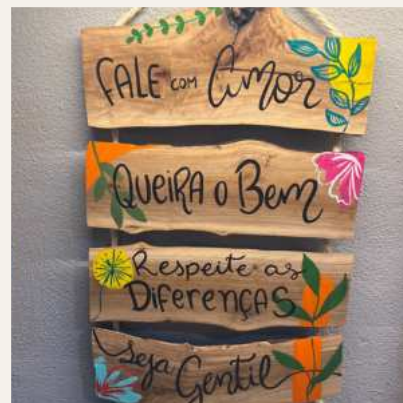 FALE com Amor
QUEIRA o Bem
Respeite as
DIFERENÇAS
Seja
Gentil